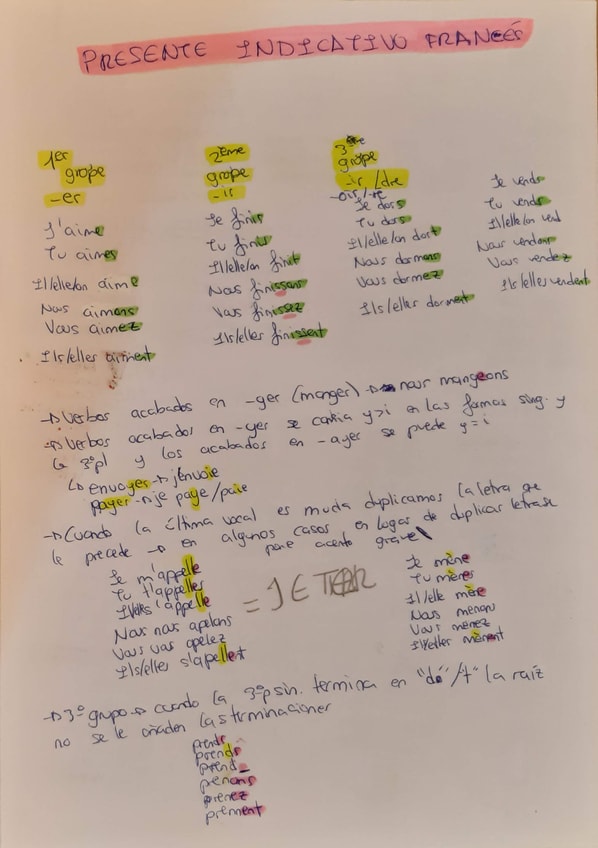 PRESENTE INDICATIVO FRANCÉS
1er
grope
-er
J'aime
Tu aimes
Il/elle/on aime
Nous aimons
Vous aimez
Ils/elles aiment
2ème
grope
-ir
Je finis
Tu finis
Il/elle/on finit
Nous finissons
Vous finissez
Ils/elles finissent
3ème
grope
-ir/dre
-oir/-re
Je dors
Tu dors
Il/elle/on dort
Nous dormons
Vous dormez
Ils/elles dorment
Je vends
Tu vends
Il/elle/on vend
Nous vendons
Vous vendez
Ils/elles vendent
→ Verbos acabados en -ger (manger) → nous mangeons
→ Verbos acabados en -yer se cambia y>i en las formas sing. y
la 3ºpl y los acabados en -ayer se puede y=i
↳ envoyer → j'envoie
payer → je paye/paie
→ Cuando la última vocal es muda duplicamos la letra qe
le precede → en algunos casos en lugar de duplicar letra se
pone acento grave \
Je m'appelle
Tu t'appelles
Il/elle s'appelle
Nous nous apelons
Vous vous apelez
Ils/elles s'apellent
= JETER
Je mène
Tu mènes
Il/elle mène
Nous menons
Vous menez
Ils/elles mènent
→ 3º grupo → cuando la 3ºp sin. termina en "d"/"t" la raíz
no se le añaden las terminaciones
prends
prends
prend_
prenons
prenez
prennent